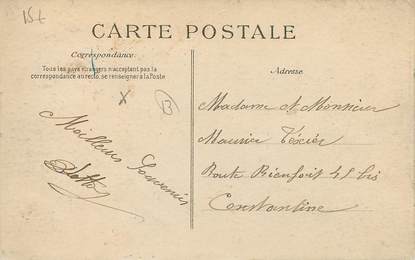 15€
CARTE POSTALE
Correspondance
Tous les pays étrangers n'acceptant pas la
correspondance au recto, se renseigner à la Poste
Adresse
X
B
Meilleurs Souvenirs
Madame et Monsieur
Maurice Téxier
Route Bienfait 45 bis
Constantine